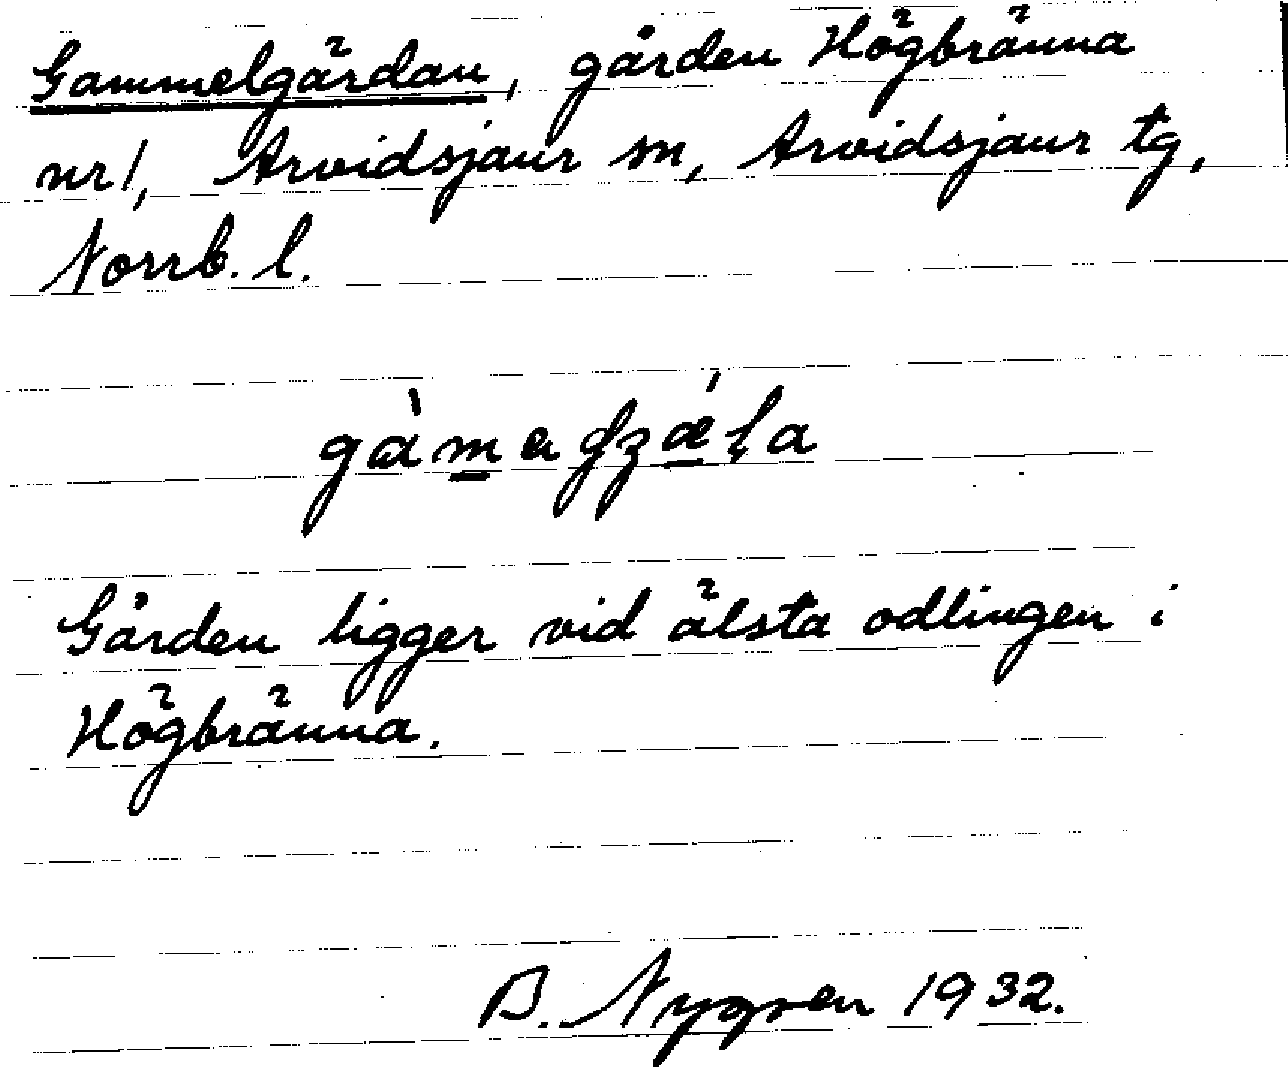 Gammelgärdan, gården Högbränna
nr 1, Arvidsjaur sn, Arvidsjaur tg,
Norrb. l.
Gården ligger vid älsta odlingen i
Högbränna.
B. Nygren 1932.